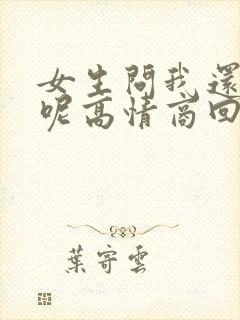 女生問我還
呢高情商回
葉寄雲